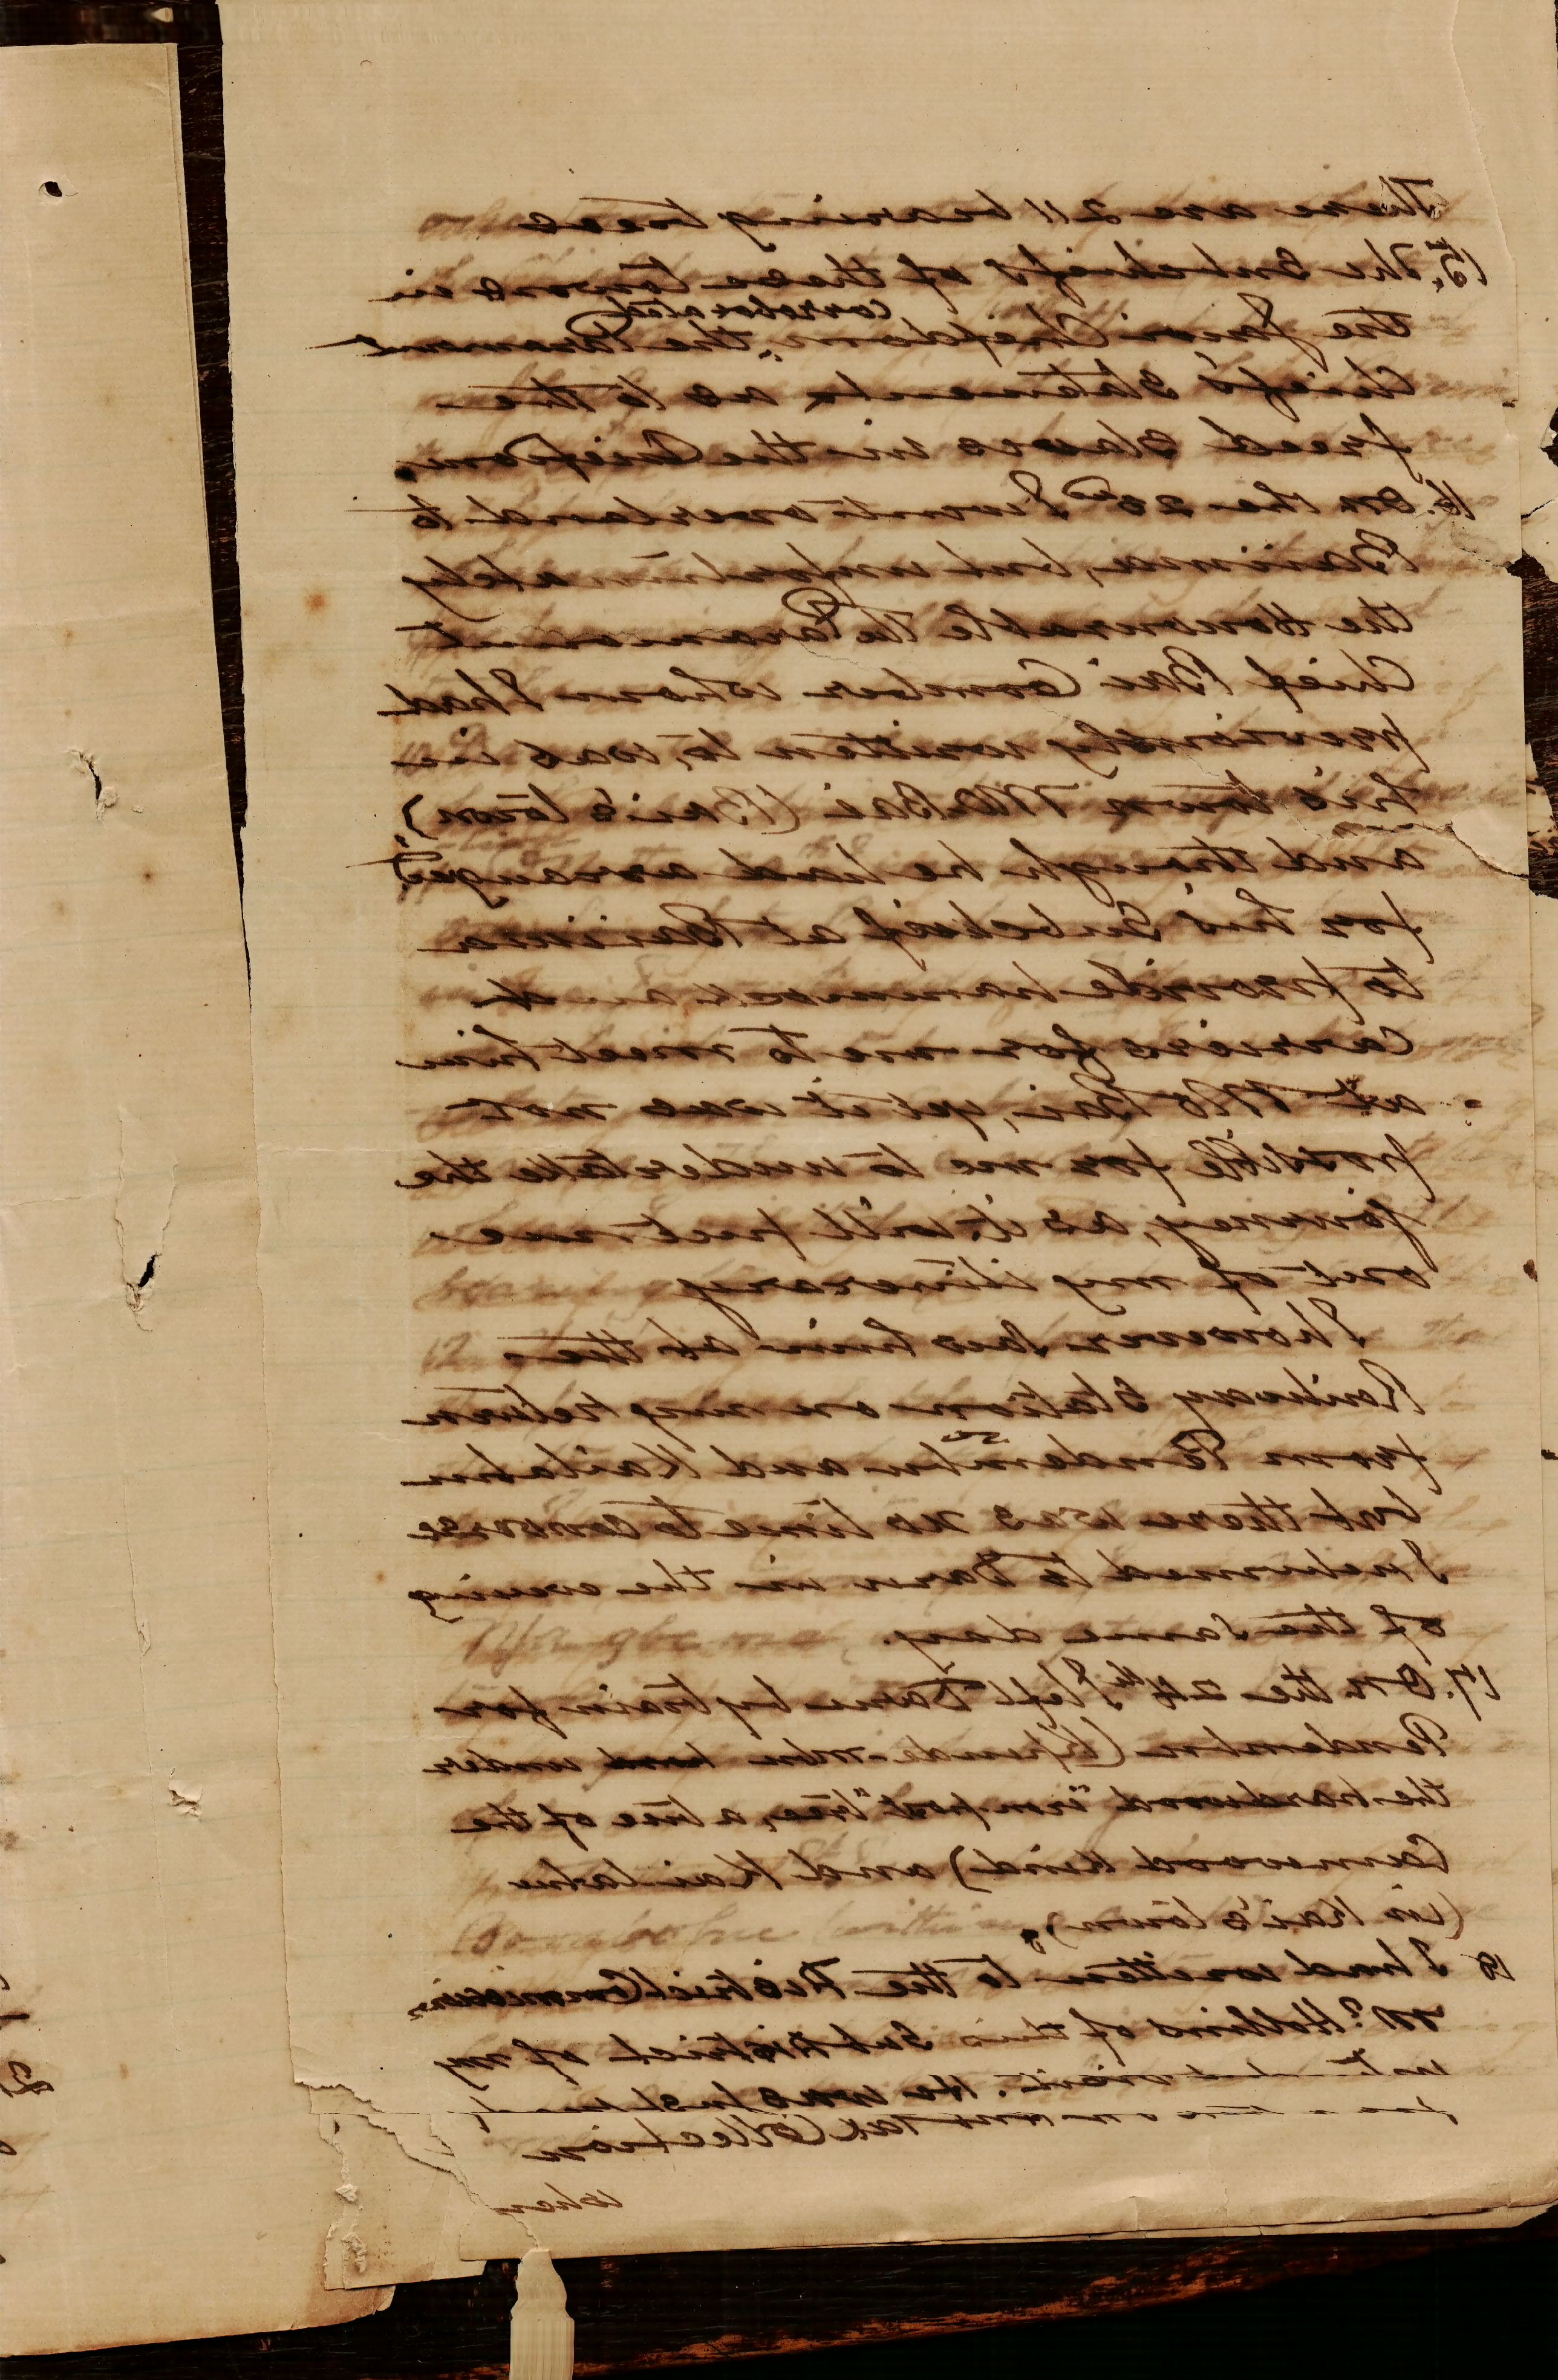 There are 211 bearing trees
15. The Subchiefs of these towns in
the Jawi Chiefdom, corroborated the Paramount
Chief's Statements as to the
freed slaves in the Chiefdom.
16. On the 23rd I went overland to
Bauima, but unfortunately
the Honourable the Paramount
Chief Bai Comber whom I had
previously written to, was in
his town MoBai (Bai's town)
and though he had arranged
for his Subchief at Bauima
to provide hammock and
Carriers for me to meet him
at MoBai, yet it was not
possible for me to undertake the
journey, as it will put me
out of my itinerary
I however saw him at the
Railway Station on my return
from Pendembu and Kailahu
but there was no time to converse
I returned to Daru in the evening
of the same day.
17. On the 24th I left Daru by train for
Pendembu (Kpende-mbu under
the hardwood "iron post" tree, a tree of the
Camwood kind) and Kailahu
(in Kai's town).
18 I had written to the District Commissioner
Mr. Hollins of this Sub District of my
visit. He was just
tax Collection
when